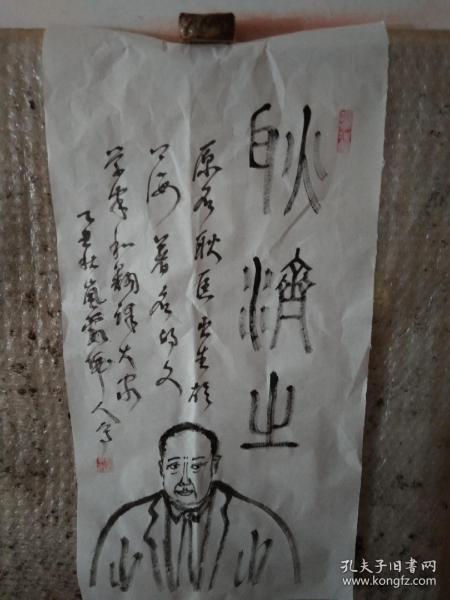 耿濟之
原名耿匡出生於
上海著名的文
学家和翻譯大家
乙丑秋嵐霞
人写
孔夫子旧书网
www.kongfz.com